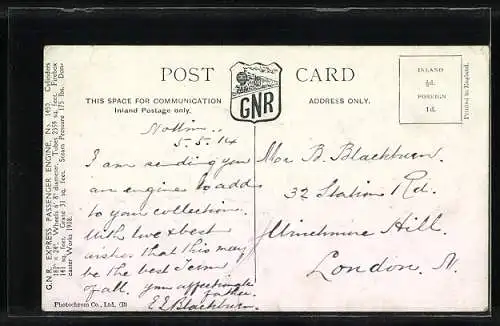 POST CARD
GNR
THIS SPACE FOR COMMUNICATION
Inland Postage only.
ADDRESS ONLY.
INLAND
½d.
FOREIGN
1d.
Printed in England.
G.N.R. EXPRESS PASSENGER ENGINE, No. 1453. Cylinders
Wheels 6' 8" diameter. Tubes 2359 sq. feet. Firebox
141 sq. feet. Grate 31 sq. feet. Steam Pressure 175 lbs. Don-
caster Works 1908.
5.5.14
I am sending you
an engine to add
to your collection.
With love & best
wishes that this may
be the best Term
of all. your affectionate
father.
E E Blackburn.
B. Blackburn.
32 Station Rd.
Winchmore Hill.
London. N.
Photochrom Co., Ltd.